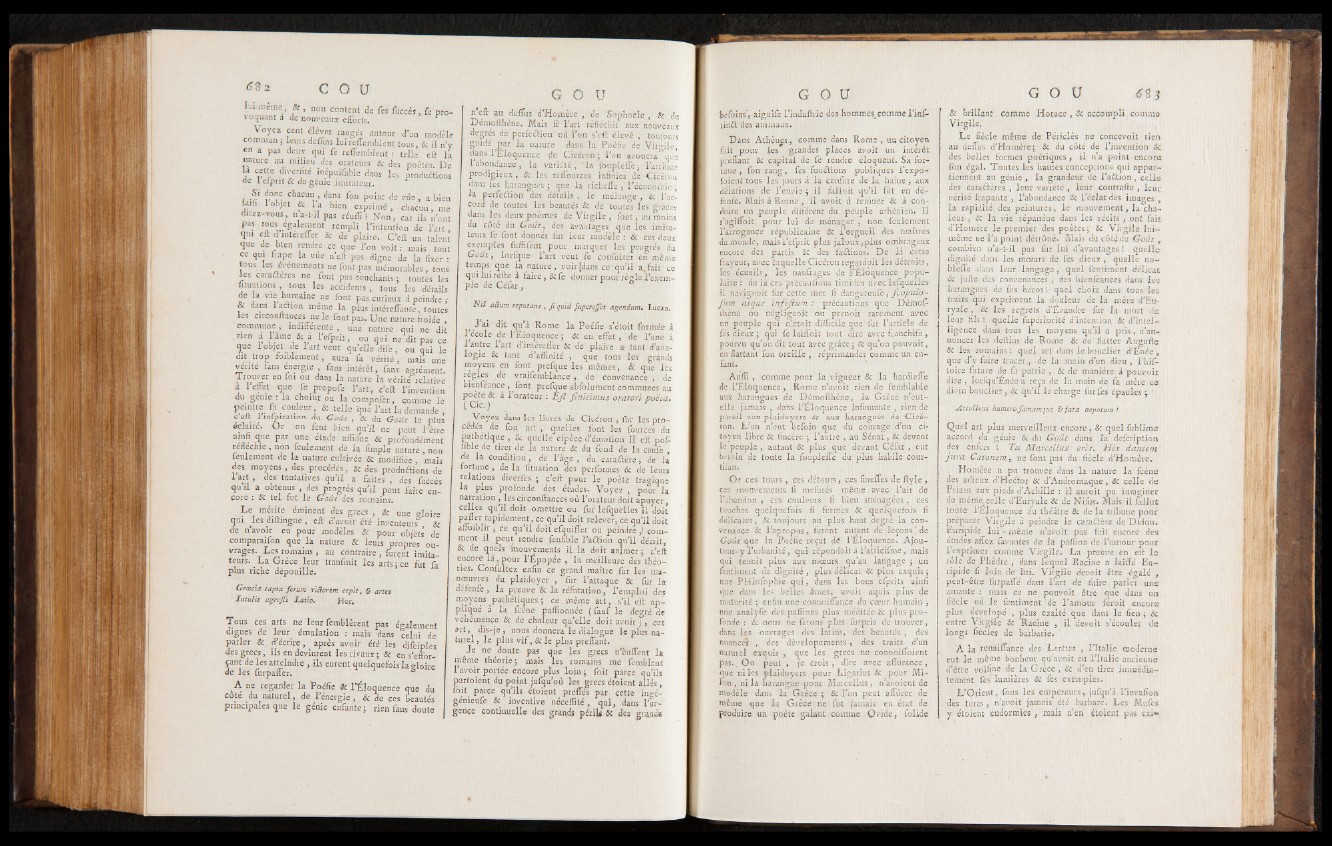 682 G O U
lui-même, &, non content de ses succès, se pro-
voquant à de nouveaux efforts.
Voyez cent élèves rangés autour d'un modèle
commun; leurs dessins lui ressemblent tous, & il n'y
en a pas deux qui se ressemblent : telle est la
nature au milieu des orateurs & des poètes. De
là cette diversité inépuisable dans les productions
de l'esprit & du génie imitateur.
Si donc chacun, dans son point de vûe, a bien
saisi l'objet & l'a bien exprimé, chacun, me
direz-vous, n'a-t-il pas réussi? Non, car ils n'ont
pas tous également rempli l'intention de l'art,
qui est d'intéresser & de plaire. C'est un talent
que de bien rendre ce que l'on voit : mais tout
ce qui frape la vûe n'est pas digne de la fixer :
tous les évènements ne sont pas mémorables, tous
les caractères ne sont pas touchants; toutes les
situations, tous les accidents, tous les détails
de la vie humaine ne sont pas curieux à peindre;
& dans l'action même la plus intéressante, toutes
les circonstances ne le sont pas. Une nature froide,
commune, indifférente, une nature qui ne dit
rien à l'âme & à l'esprit, ou qui ne dit pas ce
que l'objet de l'art veut qu'elle dise, ou qui le
dit trop foiblement, aura sa vérité, mais une
vérité sans énergie, sans intérêt, sans agrément.
Trouver en soi ou dans la nature la vérité relative
à l'effet que se propose l'art, c'est l'invention
du génie : la choisir ou la composer, comme le
peintre sa couleur, & telle que l'art la demande,
c'est l'inspiration du Goût, & du Goût le plus
éclairé. Or on sent bien qu'il ne peut l'être
ainsi que par une étude assidue & profondément
réfléchie, non seulement de la simple nature, non
seulement de la nature cultivée & modifiée, mais
des moyens, des procédés, & des productions de
l'art, des tentatives qu'il a faites, des succès
qu'il a obtenus, des progrès qu'il peut faire en-
core : & tel fut le Goût des romains.
Le mérite éminent des grecs, & une gloire
qui les distingue, est d'avoir été inventeurs, &
de n'avoir eu pour modèles & pour objets de
comparaison que la nature & leurs propres ou-
vrages. Les romains, au contraire, furent imita-
teurs. La Grèce leur transmit les arts; ce fut sa
plus riche dépouille.
Græcia capta ferum victorem cepit, & artes
Intulit agresti Latio. Hor.
Tous ces arts ne leur semblèrent pas également
dignes de leur émulation : mais dans celui de
parler & d'écrire, après avoir été les disciples
des grecs, ils en devinrent les rivaux; & en s'effor-
çant de les atteindre, ils eurent quelquefois la gloire
de les surpasser.
A ne regarder la Poésie & l'Éloquence que du
côté du naturel, de l'énergie, & de ces beautés
principales que le génie enfante; rien sans doute
G O U
n'est au dessus d'Homère, de Sophocle, & de
Démosthène. Mais si l'art réfléchit aux nouveaux
degrés de perfection où l'on s'est élevé, toujours
guidé par la nature dans la Poésie de Virgile,
dans l'Éloquence de Cicéron; l'on avouera que
l'abondance, la variété, la souplesse, l'artifice
prodigieux, & les ressources infinies de Cicéron
dans ses harangues; que la richesse, l'économie,
la perfection des détails, le mélange, & l'ac-
cord de toutes les beautés & de toutes les grâces
dans les deux poèmes de Virgile, sont, au moins
du côté du Goût, des avantages que les imita-
teurs se sont donnés sur leur modèle : & ces deux
exemples suffisent pour marquer les progrès du
Goût, lorsque l'art veut se consulter en même
temps que la nature, voir dans ce qu'il a fait ce
qui lui reste à faire, & se donner pour règle l'exem-
ple de César,
Nil actum reputans, si quid superesset agendum. Lucan.
J'ai dit qu'à Rome la Poésie s'étoit formée à
l'école de l'Éloquence; & en effet, de l'une à
l'autre l'art d'intéresser & de plaire a tant d'ana-
logie & tant d'affinité, que tous les grands
moyens en sont presque les mêmes, & que les
règles de vraisemblance, de convenance, de
bienséance, sont presque absolument communes au
poète & à l'orateur : Est finitimus oratori poeta.
(Cic.)
Voyez dans les livres de Cicéron, sur les pro-
cédés de son art, quelles sont les sources du
pathétique, & quelle espèce d'émotion il est pos-
sible de tirer de la nature & du fond de la cause,
de la condition, de l'âge, du caractère, de la
fortune, de la situation des personnes & de leurs
relations diverses; c'est pour le poète tragique
la plus profonde des études. Voyez, pour la
narration, les circonstances où l'orateur doit apuyer,
celles qu'il doit omettre ou sur lesquelles il doit
passer rapidement, ce qu'il doit relever, ce qu'il doit
affoiblir, ce qu'il doit esquisser ou peindre, com-
ment il peut rendre sensible l'action qu'il décrit,
& de quels mouvements il la doit animer; c'est
encore là, pour l'Épopée, la meilleure des théo-
ries. Consultez enfin ce grand maître sur les ma-
nœuvres du plaidoyer, sur l'attaque & sur la
défense, la preuve & la réfutation, l'emploi des
moyens pathétiques; ce même art, s'il est ap-
pliqué à la scène passionnée (sauf le degré de
véhémence & de chaleur qu'elle doit avoir), cet
art, dis-je, nous donnera le dialogue le plus na-
turel, le plus vif, & le plus pressant.
Je ne doute pas que les grecs n'eussent la
même théorie; mais les romains me semblent
l'avoir portée encore plus loin; soit parce qu'ils
partoient du point jusqu'où les grecs étoient allés,
soit parce qu'ils étoient pressés par cette ingé-
génieuse & inventive nécessité, qui, dans l'ur-
gence continuelle des grands périls & des grands
G O U
besoins, aiguise l'industrie des hommes, comme l'ins-
tinct des animaux.
Dans Athènes, comme dans Rome, un citoyen
fait pour les grandes places avoit un intérêt
pressant & capital de se rendre éloquent. Sa for-
tune, son rang, ses fonctions publiques l'expo-
soient tous les jours à la censure de la haine, aux
délations de l'envie; il falloit qu'il fût en dé-
fense. Mais à Rome, il avoit à remuer & à con-
duire un peuple différent du peuple athénien. Il
s'agissoit pour lui de ménager, non seulement
l'arrogance républicaine & l'orgueil des maîtres
du monde, mais l'esprit plus jaloux, plus ombrageux
encore des partis & des factions. De là cette
frayeur, avec laquelle Cicéron regardoit les détroits,
les écueils, les naufrages de l'Éloquence popu-
laire : de là ces précautions timides avec lesquelles
il navigeoit sur cette mer si dangereuse, scopulo-
sum atque infestum : précautions que Démos-
thène ou négligeoit ou prenoit rarement avec
un peuple qui n'étoit difficile que sur l'article de
ses dieux; qui se laissoit tout dire avec franchise,
pourvu qu'on dît tout avec grâce; & qu'on pouvoit,
en flattant son oreille, réprimander comme un en-
fant.
Aussi, comme pour la vigueur & la hardiesse
de l'Éloquence, Rome n'avoit rien de semblable
aux harangues de Démosthène, la Grèce n'eut-
elle jamais, dans l'Éloquence insinuante, rien de
pareil aux plaidoyers & aux harangues de Cicé-
ron. L'un n'eut besoin que du courage d'un ci-
toyen libre & sincère; l'autre, au Sénat, & devant
le peuple, autant & plus que devant César, eut
besoin de toute la souplesse du plus habile cour-
tisan.
Or ces tours, ces détours, ces finesses de style,
ces mouvements si mesurés même avec l'air de
l'abandon, ces couleurs si bien ménagées, ces
touches quelquefois si fermes & quelquefois si
délicates, & toujours au plus haut degré la con-
venance & l'apropos, furent autant de leçons de
Goût que la Poésie reçut de l'Éloquence. Ajou-
tons-y l'urbanité, qui répondoit à l'atticisme, mais
qui tenoit plus aux mœurs qu'au langage; un
sentiment de dignité, plus délicat & plus exquis;
une Philosophie qui, dans les bons esprits ainsi
que dans les belles âmes, avoit aquis plus de
maturité; enfin une connoissance du cœur humain,
une analyse des passions plus méditée & plus pro-
fonde; & nous ne serons plus surpris de trouver,
dans les ouvrages des latins, des beautés, des
nuances, des dévelopements, des traits d'un
naturel exquis, que les grecs ne connoissoient
pas. On peut, je crois, dire avec assûrance,
que ni les plaidoyers pour Ligarius & pour Mi-
lon, ni la harangue pour Marcellus, n'avoient de
modèle dans la Grèce; & l'on peut assûrer de
même que la Grèce ne fut jamais en état de
produire un poète galant comme Ovide, solide
G O U 683
& brillant comme Horace, & accompli comme
Virgile.
Le siècle même de Périclès ne concevoit rien
au dessus d'Homère; & du côté de l'invention &
des belles formes poétiques, il n'a point encore
son égal. Toutes les hautes conceptions qui appar-
tiennent au génie, la grandeur de l'action, celle
des caractères, leur variété, leur contraste, leur
vérité frapante, l'abondance & l'éclat des images,
la rapidité des peintures, le mouvement, la cha-
leur, & la vie répandue dans les récits, ont fait
d'Homère le premier des poètes; & Virgile lui-
même ne l'a point détrôné. Mais du côté du Goût,
combien n'a-t-il pas sur lui d'avantages! quelle
dignité dans les mœurs de ses dieux, quelle no-
blesse dans leur langage, quel sentiment délicat
& juste des convenances, des bienséances dans les
harangues de ses héros! quel choix dans tous les
traits qui expriment la douleur de la mère d'Eu-
ryale, & les regrets d'Évandre sur la mort de
leur fils! quelle supériorité d'intention & d'intel-
ligence dans tous les moyens qu'il a pris, d'an-
noncer les destins de Rome & de flatter Auguste
& les romains! quel art dans le bouclier d'Énée,
que d'y faire tracer, de la main d'un dieu, l'his-
toire future de sa patrie, & de manière à pouvoir
dire, lorsqu'Énée a reçu de la main de sa mère ce
divin bouclier, & qu'il le charge sur ses épaules;
Attollens humero famamque & fata nepotum !
Quel art plus merveilleux encore, & quel sublime
accord du génie & du Goût dans la description
des enfers! Tu Marcellus eris. His dantem
jura Catonem, ne sont pas du siècle d'Homère.
Homère a pu trouver dans la nature la scène
des adieux d'Hector & d'Andromaque, & celle de
Priam aux pieds d'Achille : il auroit pu imaginer
de même celle d'Euryale & de Nisus. Mais il fallut
toute l'Éloquence du théâtre & de la tribune pour
préparer Virgile à peindre le caractère de Didon.
Euripide lui-même n'avoit pas fait encore des
études assez savantes de la passion de l'amour pour
l'exprimer comme Virgile. La preuve en est le
rôle de Phèdre, dans lequel Racine a laissé Eu-
ripide si loin de lui. Virgile devoit être égalé,
peut-être surpassé dans l'art de faire parler une
amante : mais ce ne pouvoit être que dans un
siècle où le sentiment de l'amour seroit encore
plus dévelopé, plus exalté que dans le sien; &
entre Virgile & Racine, il devoit s'écouler de
longs siècles de barbarie.
A la renaissance des Lettres, l'Italie moderne
eut le même bonheur qu'avoit eu l'Italie ancienne
d'être voisine de la Grèce, & d'en tirer immédia-
tement ses lumières & ses exemples.
L'Orient, sous les empereurs, jusqu'à l'invasion
des turcs, n'avoit jamais été barbare. Les Muses
y étoient endormies, mais n'en étoient pas exi-